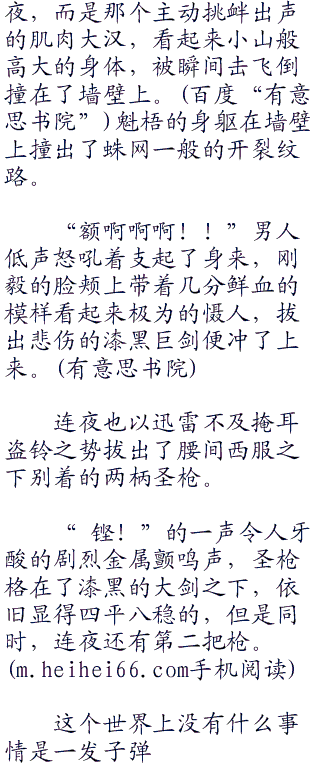 夜，而是那个主动挑衅出声
的肌肉大汉，看起来小山般
高大的身体，被瞬间击飞倒
撞在了墙壁上。(百度“有意
思书院”)魁梧的身躯在墙壁
上撞出了蛛网一般的开裂纹
路。
“额啊啊啊！！”男人
低声怒吼着支起了身来，刚
毅的脸颊上带着几分鲜血的
模样看起来极为的慑人，拔
出悲伤的漆黑巨剑便冲了上
来。(有意思书院)
连夜也以迅雷不及掩耳
盗铃之势拔出了腰间西服之
下别着的两柄圣枪。
“ 铿！”的一声令人牙
酸的剧烈金属颤鸣声，圣枪
格在了漆黑的大剑之下，依
旧显得四平八稳的，但是同
时，连夜还有第二把枪。
(m.heihei66.com手机阅读)
这个世界上没有什么事
情是一发子弹